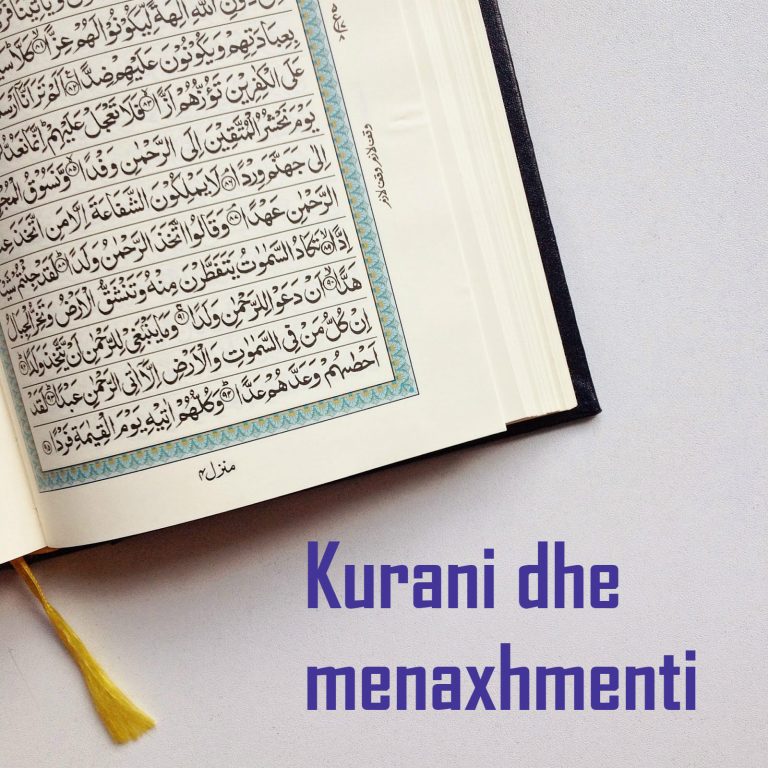 دُوْنِ اللّٰهِ اٰلِهَةً لِّيَكُوْنُوْا لَهُمْ عِزًّا ۸۱ كَلَّا
بِعِبَادَتِهِمْ وَيَكُوْنُوْنَ عَلَيْهِمْ ضِدًّا ۸۲ اَلَمْ تَرَ اَنَّا
عَلَى الْكٰفِرِيْنَ تَؤُزُّهُمْ اَزًّا ۸۳ فَلَا تَعْجَلْ عَلَيْهِمْ اِنَّمَا نَعُدُّ
يَوْمَ نَحْشُرُ الْمُتَّقِيْنَ اِلَى الرَّحْمٰنِ وَفْدًا ۸۵ وَّنَسُوْقُ
اِلٰى جَهَنَّمَ وِرْدًا ۸۶ لَا يَمْلِكُوْنَ الشَّفَاعَةَ اِلَّا مَنِ اتَّخَذَ
الرَّحْمٰنِ عَهْدًا ۸۷ وَقَالُوا اتَّخَذَ الرَّحْمٰنُ وَلَدًا ۸۸ لَقَدْ جِئْتُمْ
اِدًّا ۸۹ تَكَادُ السَّمٰوٰتُ يَتَفَطَّرْنَ مِنْهُ وَتَنْشَقُّ الْاَرْضُ وَتَخِرُّ الْجِبَالُ
هَدًّا ۹۰ اَنْ دَعَوْا لِلرَّحْمٰنِ وَلَدًا ۹۱ وَمَا يَنْۢبَغِيْ لِلرَّحْمٰنِ اَنْ يَّتَّخِذَ وَلَدًا ۹۲
اِنْ كُلُّ مَنْ فِي السَّمٰوٰتِ وَالْاَرْضِ اِلَّاۤ اٰتِي الرَّحْمٰنِ عَبْدًا ۹۳ لَقَدْ
اَحْصٰىهُمْ وَعَدَّهُمْ عَدًّا ۹۴ وَكُلُّهُمْ اٰتِيْهِ يَوْمَ الْقِيٰمَةِ فَرْدًا ۹۵
وقف لازم وقف لازم
منزل ۴
Kurani dhe
menaxhmenti